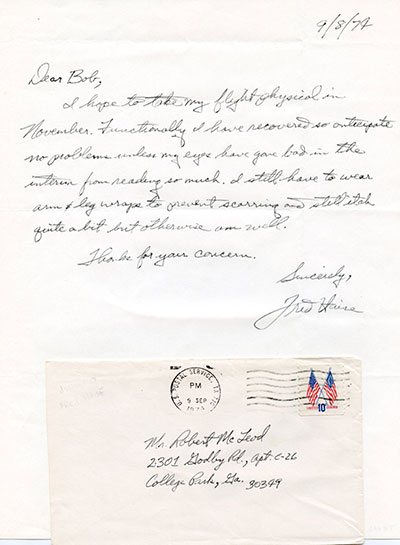 9/8/74
Dear Bob,
I hope to take my flight physical in
November. Functionally I have recovered so anticipate
no problems unless my eyes have gone bad in the
interim from reading so much. I still have to wear
arm & leg wraps to prevent scarring and still itch
quite a bit but otherwise am well.
Thanks for your concern.
Sincerely,
Fred Haise
U.S. POSTAL SERVICE, TX
PM
9 SEP
10¢
Mr. Robert McLeod
2301 Godby Rd., Apt. C-26
College Park, Ga. 30349